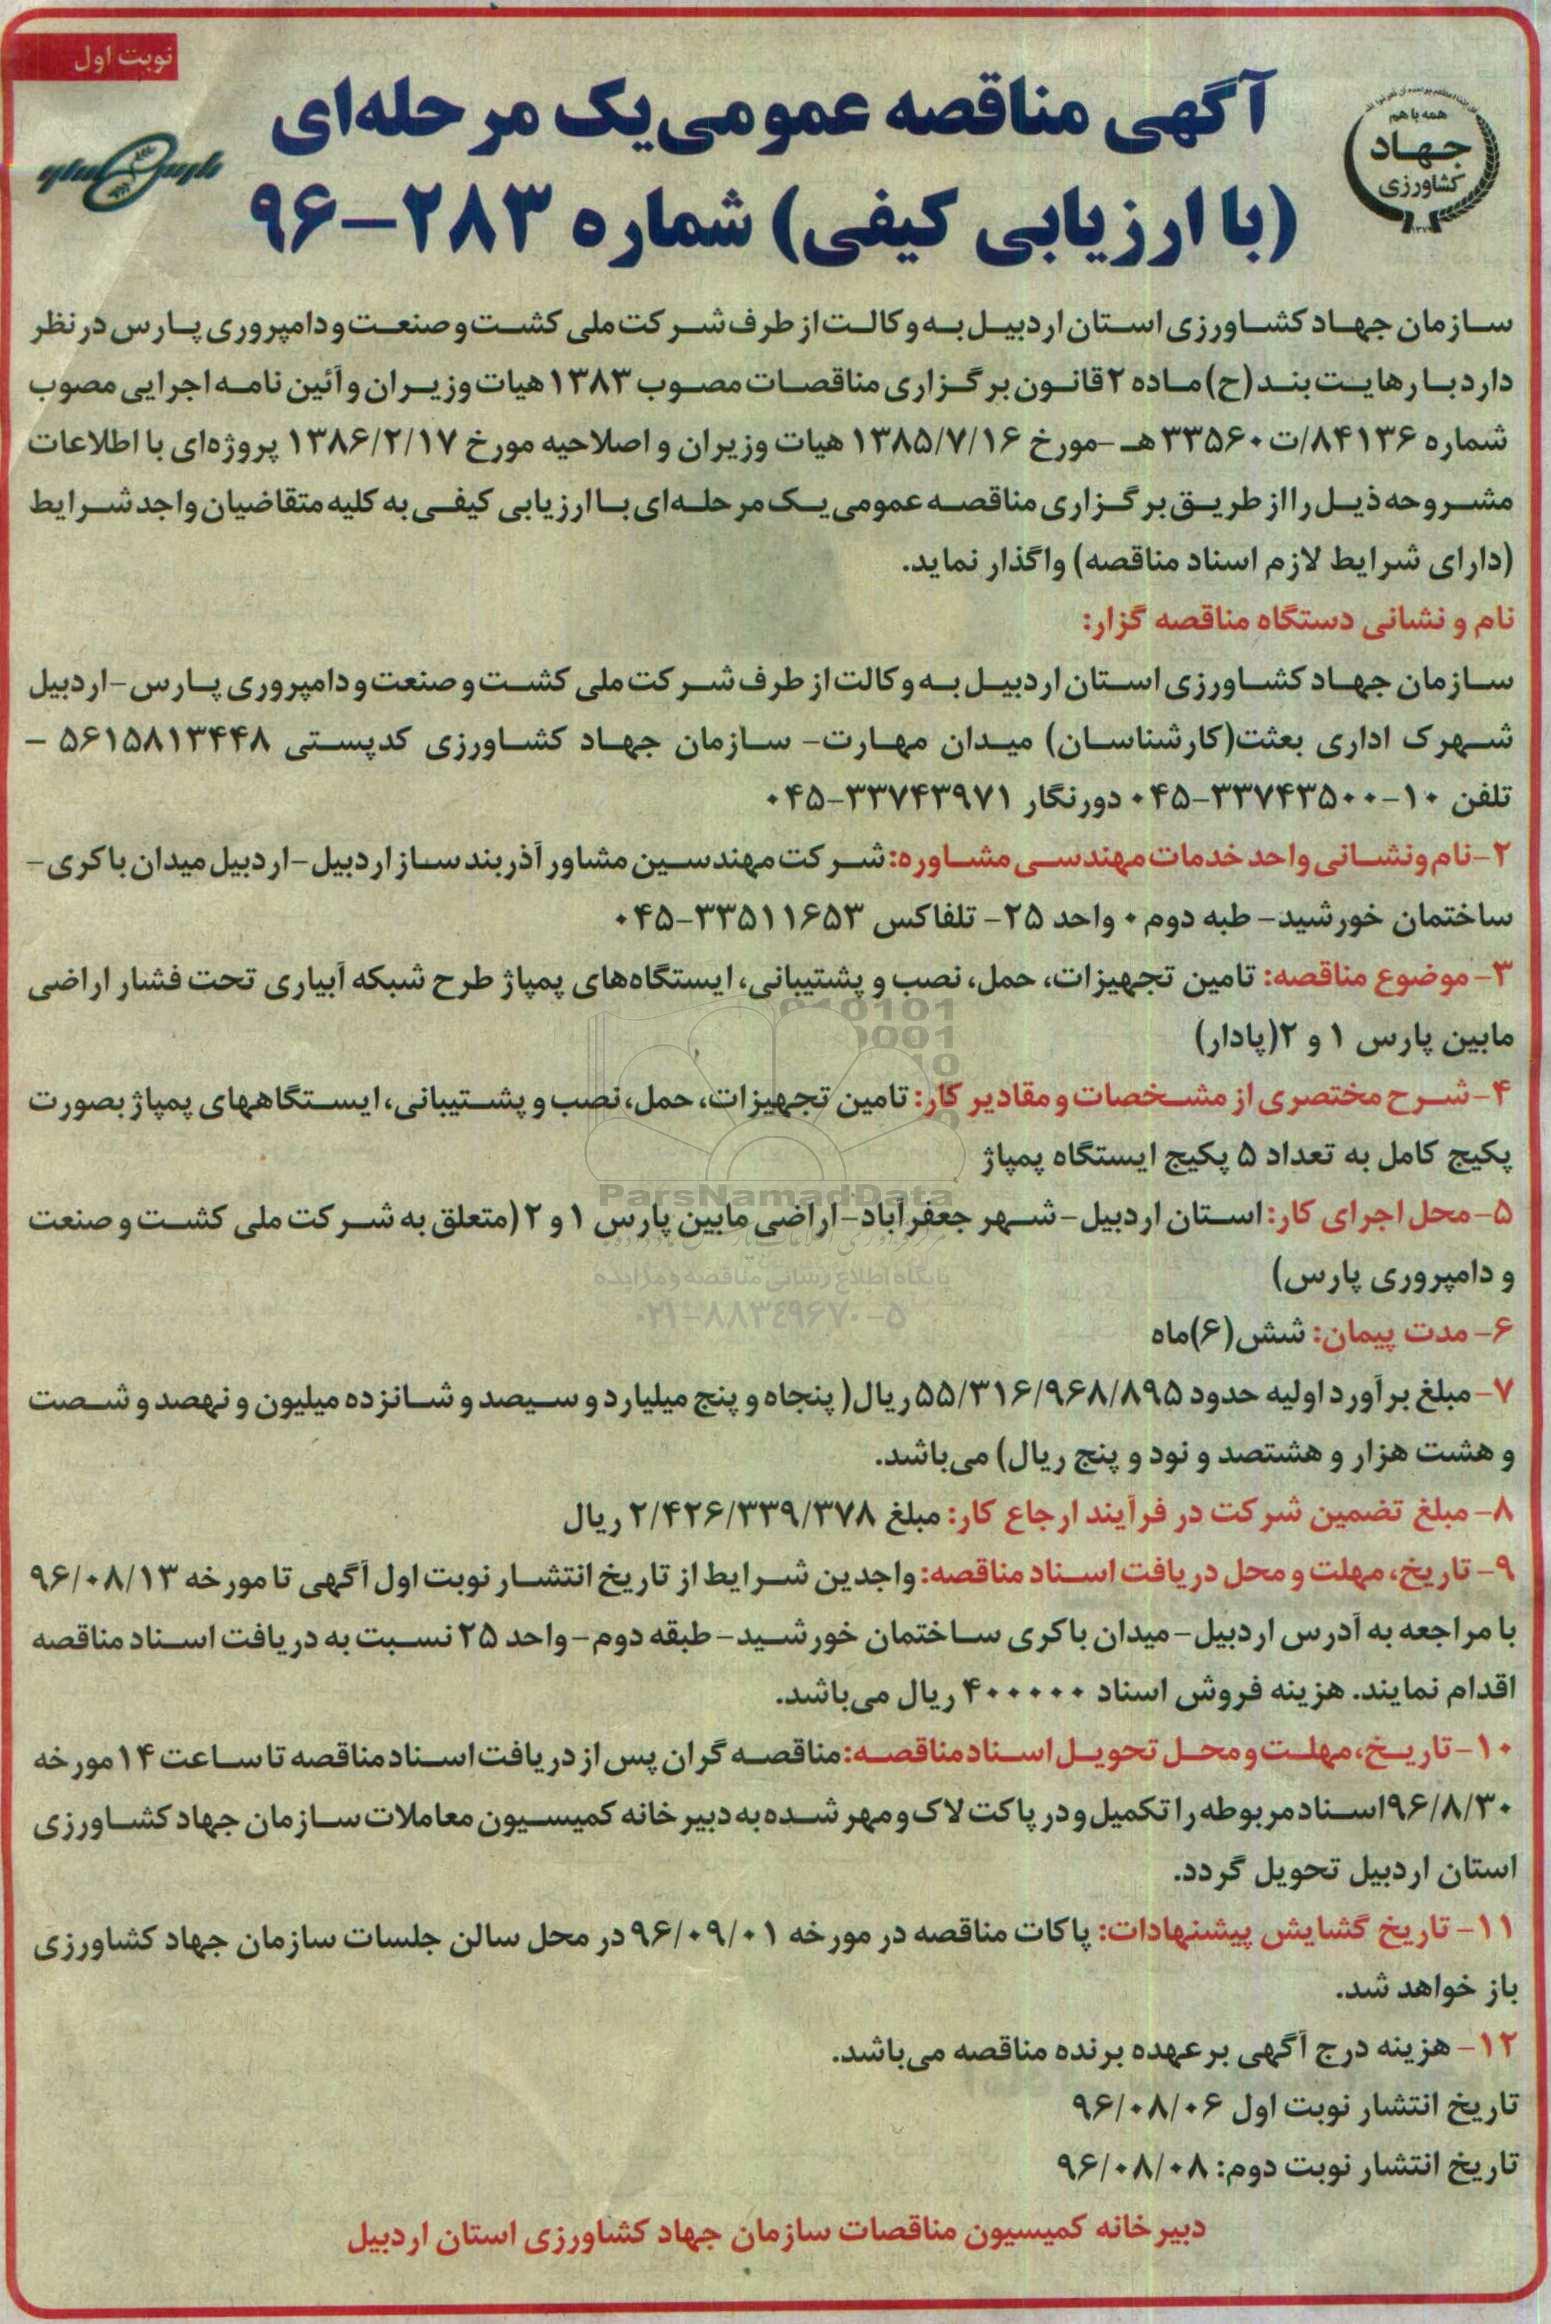 نوبت اول
همه با هم
جهاد
کشاورزی
آگهی مناقصه عمومی یک مرحله‌ای
(با ارزیابی کیفی) شماره ۲۸۳-۹۶
سازمان جهاد کشاورزی استان اردبیل به وکالت از طرف شرکت ملی کشت و صنعت و دامپروری پارس در نظر
دارد با رهایت بند (ح) ماده ۲ قانون برگزاری مناقصات مصوب ۱۳۸۳ هیات وزیران و آئین نامه اجرایی مصوب
شماره ۸۴۱۳۶/ت۳۳۵۶۰هـ -مورخ ۱۳۸۵/۷/۱۶ هیات وزیران و اصلاحیه مورخ ۱۳۸۶/۲/۱۷ پروژه‌ای با اطلاعات
مشروحه ذیل را از طریق برگزاری مناقصه عمومی یک مرحله‌ای با ارزیابی کیفی به کلیه متقاضیان واجد شرایط
(دارای شرایط لازم اسناد مناقصه) واگذار نماید.
نام و نشانی دستگاه مناقصه گزار:
سازمان جهاد کشاورزی استان اردبیل به وکالت از طرف شرکت ملی کشت و صنعت و دامپروری پارس-اردبیل
شهرک اداری بعثت(کارشناسان) میدان مهارت- سازمان جهاد کشاورزی کدپستی ۵۶۱۵۸۱۳۴۴۸ -
تلفن ۱۰-۳۳۷۴۳۵۰۰-۰۴۵ دورنگار ۳۳۷۴۳۹۷۱-۰۴۵
۲-نام ونشانی واحد خدمات مهندسی مشاوره: شرکت مهندسین مشاور آذربند ساز اردبیل-اردبیل میدان باکری-
ساختمان خورشید- طبه دوم ۰ واحد ۲۵- تلفاکس ۳۳۵۱۱۶۵۳-۰۴۵
۳- موضوع مناقصه: تامین تجهیزات، حمل، نصب و پشتیبانی، ایستگاه‌های پمپاژ طرح شبکه آبیاری تحت فشار اراضی
مابین پارس ۱ و ۲(پادار)
۴-شرح مختصری از مشخصات و مقادیر کار: تامین تجهیزات، حمل، نصب و پشتیبانی، ایستگاههای پمپاژ بصورت
پکیج کامل به تعداد ۵ پکیج ایستگاه پمپاژ
ParsNamadData
۵- محل اجرای کار: استان اردبیل-شهر جعفرآباد-اراضی مابین پارس ۱ و ۲ (متعلق به شرکت ملی کشت و صنعت
و دامپروری پارس)
پایگاه اطلاع رسانی مناقصه و مزایده
۰۲۱-۸۸۳۴۹۶۷۰-۵
۶- مدت پیمان: شش(۶)ماه
۷- مبلغ برآورد اولیه حدود ۵۵/۳۱۶/۹۶۸/۸۹۵ ریال( پنجاه و پنج میلیارد و سیصد و شانزده میلیون و نهصد و شصت
و هشت هزار و هشتصد و نود و پنج ریال) می‌باشد.
۸- مبلغ تضمین شرکت در فرآیند ارجاع کار: مبلغ ۲/۴۲۶/۳۳۹/۳۷۸ ریال
۹- تاریخ، مهلت و محل دریافت اسناد مناقصه: واجدین شرایط از تاریخ انتشار نوبت اول آگهی تا مورخه ۹۶/۰۸/۱۳
با مراجعه به آدرس اردبیل-میدان باکری ساختمان خورشید- طبقه دوم- واحد ۲۵ نسبت به دریافت اسناد مناقصه
اقدام نمایند. هزینه فروش اسناد ۴۰۰۰۰۰ ریال می‌باشد.
۱۰-تاریخ، مهلت و محل تحویل اسناد مناقصه: مناقصه گران پس از دریافت اسناد مناقصه تا ساعت ۱۴ مورخه
۹۶/۸/۳۰ اسناد مربوطه را تکمیل و در پاکت لاک و مهر شده به دبیرخانه کمیسیون معاملات سازمان جهاد کشاورزی
استان اردبیل تحویل گردد.
۱۱- تاریخ گشایش پیشنهادات: پاکات مناقصه در مورخه ۹۶/۰۹/۰۱ در محل سالن جلسات سازمان جهاد کشاورزی
باز خواهد شد.
۱۲- هزینه درج آگهی برعهده برنده مناقصه می‌باشد.
تاریخ انتشار نوبت اول ۹۶/۰۸/۰۶
تاریخ انتشار نوبت دوم: ۹۶/۰۸/۰۸
دبیرخانه کمیسیون مناقصات سازمان جهاد کشاورزی استان اردبیل